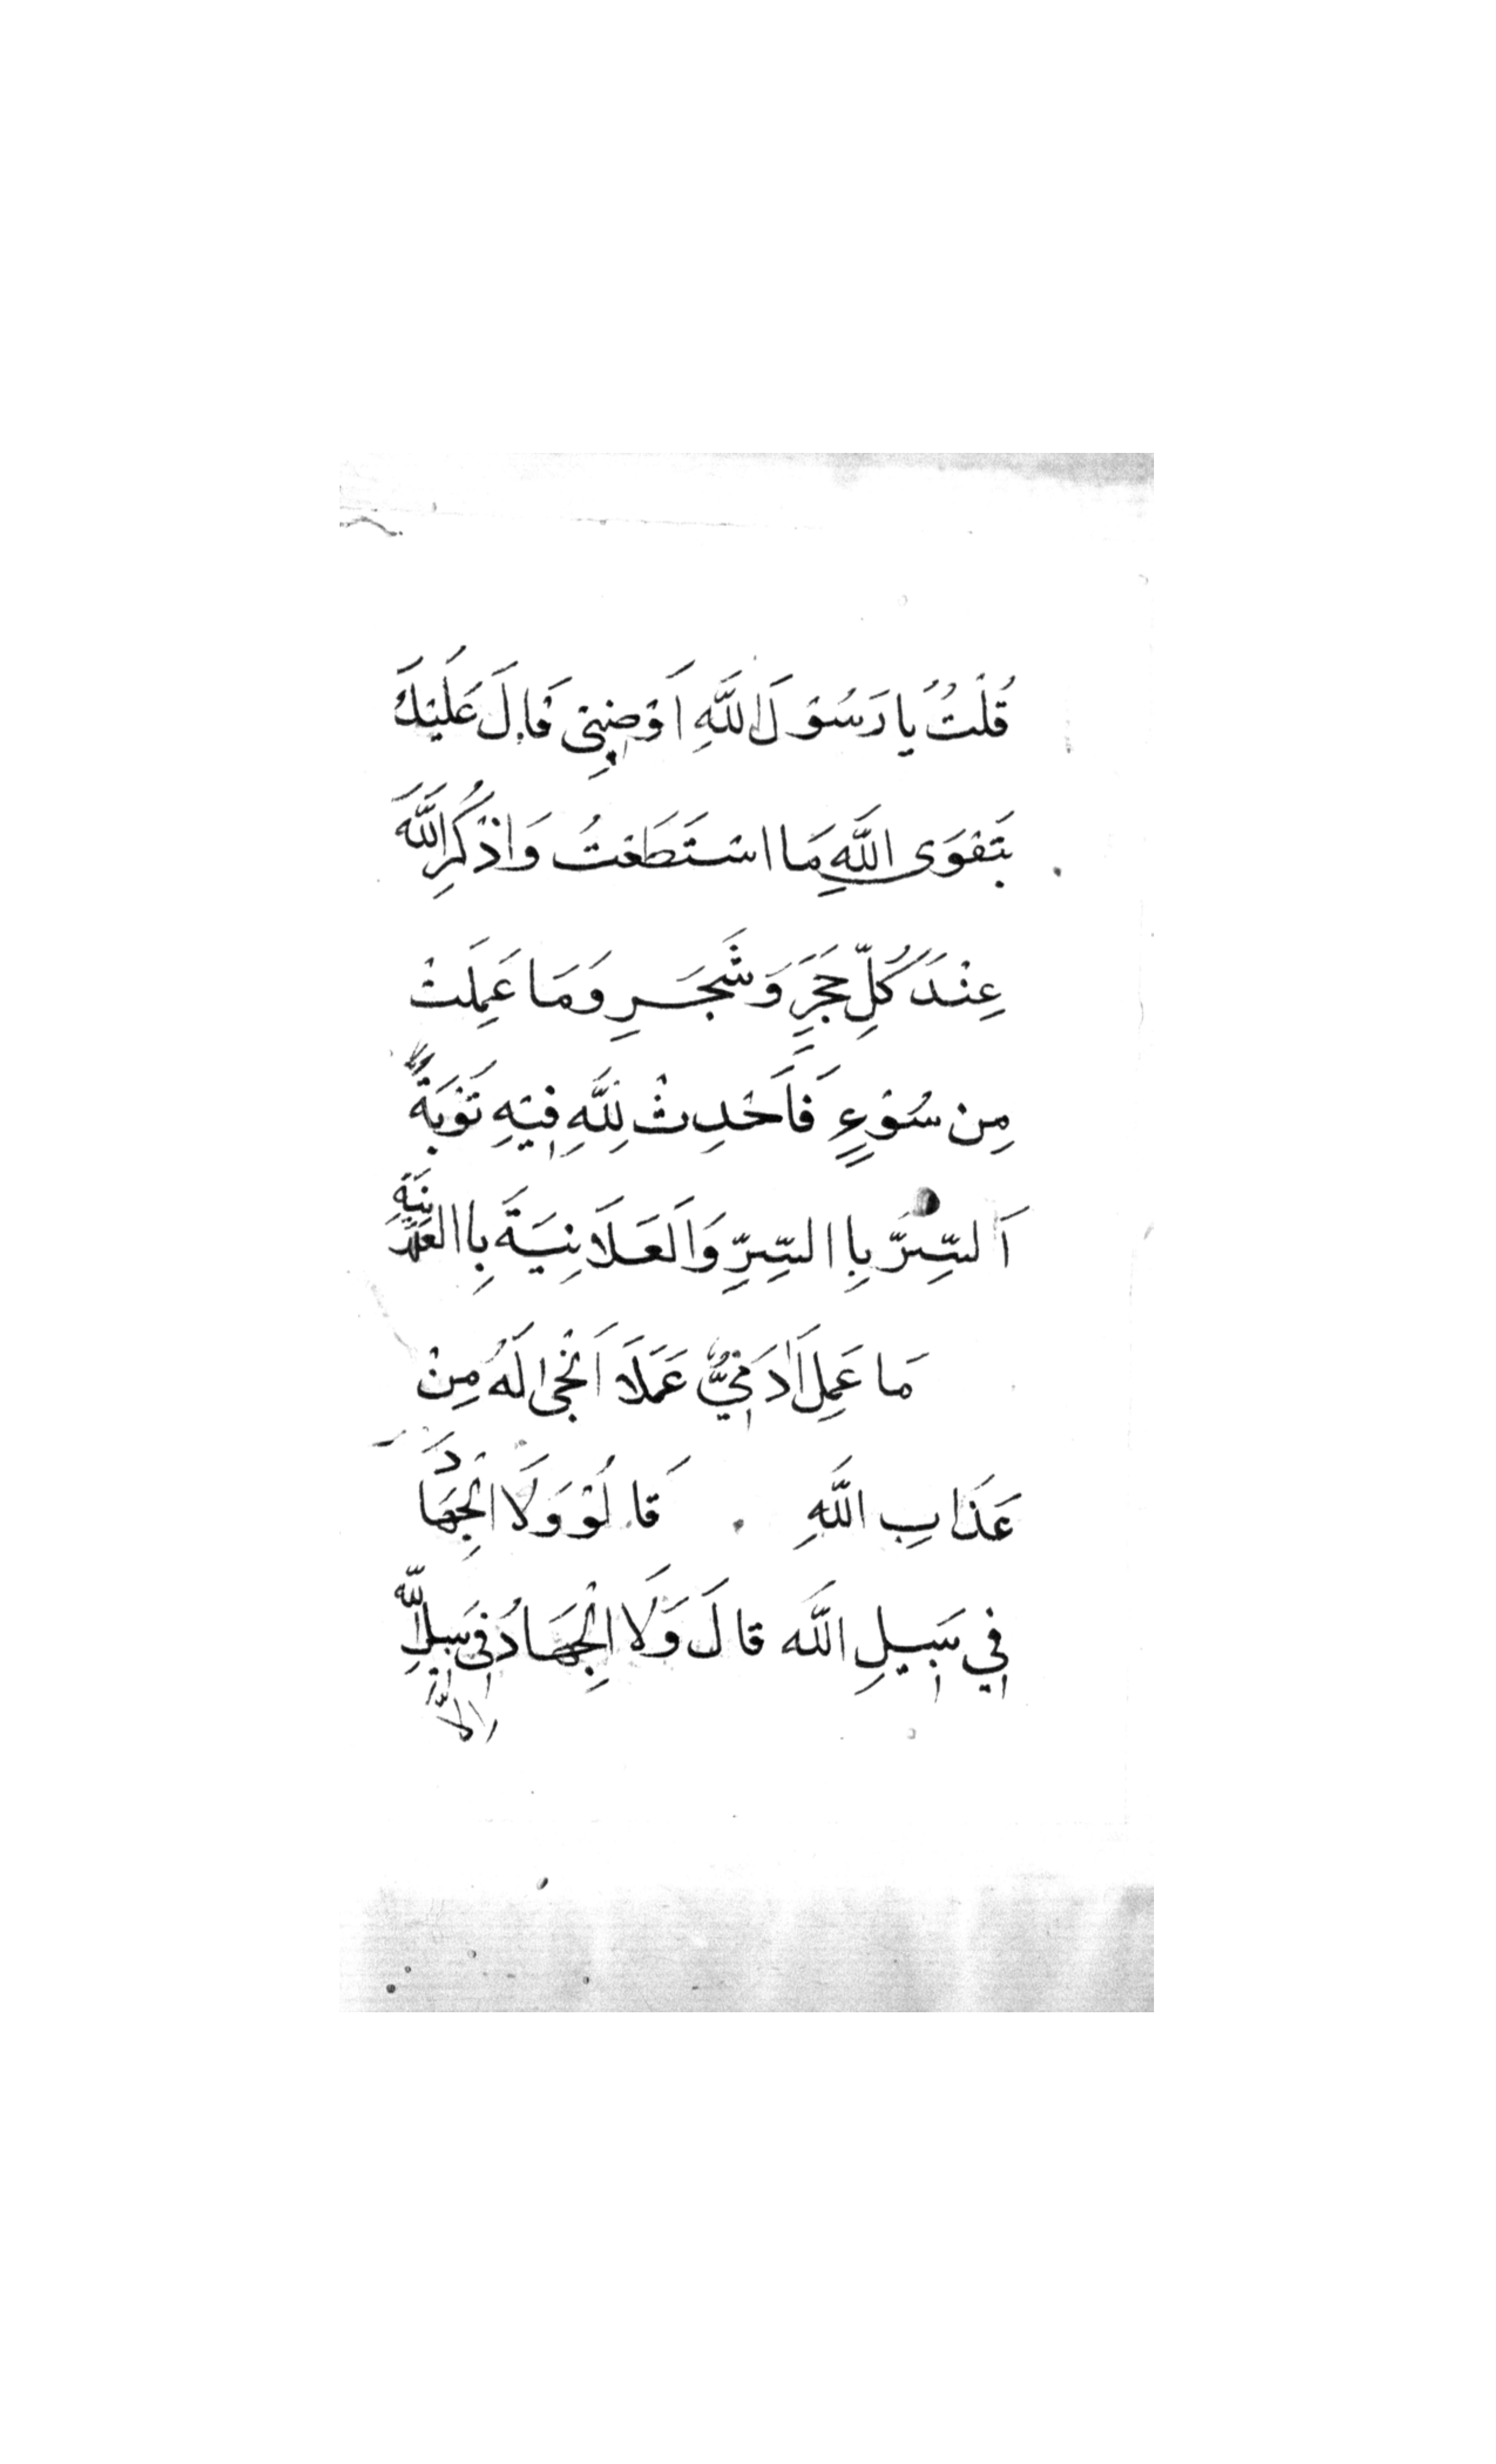 قُلْتُ يَا رَسُوْلَ اللَّهِ اَوْصِنِىْ قَالَ عَلَيْكَ
بِتَقْوَى اللَّهِ مَا اسْتَطَعْتُ وَاذْكُرِ اللَّهَ
عِنْدَ كُلِّ حَجَرٍ وَشَجَرٍ وَمَا عَمِلَتْ
مِن سُوْءٍ فَاَحْدِثْ لِلَّهِ فِيْهِ تَوْبَةً
اَلسِّرَّ بِاالسِّرِّ وَالَعَلَانِيَةَ بِاالعَلَانِيَةِ
مَا عَمِلَ اٰدَمِيٌّ عَمَلًا اَنْجٰى لَهُ مِنْ
عَذَابِ اللَّهِ قَالُوْ وَلَا الْجِهَادَ
فِي سَبِيلِ اللَّه قَالَ وَلَا الْجِهَادُ فِى سَبِيلِ اللّه
الاّ